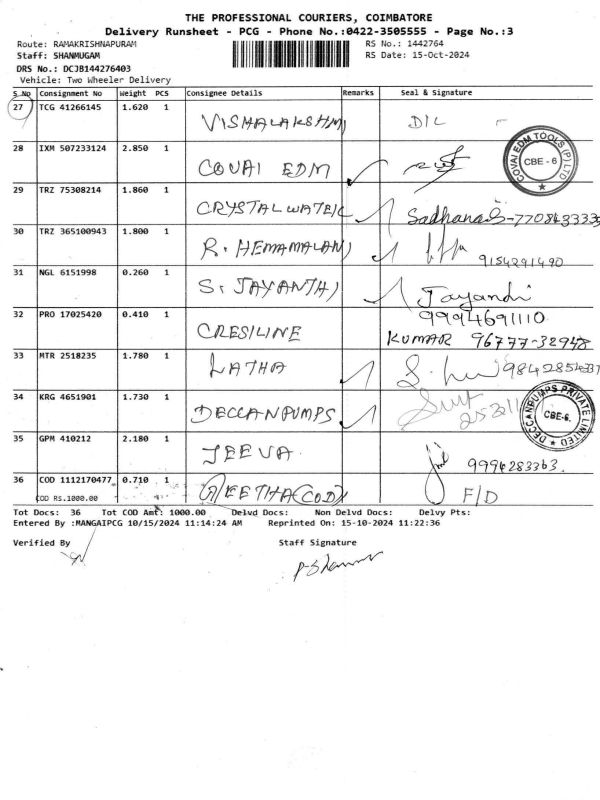 THE PROFESSIONAL COURIERS, COIMBATORE
Delivery Runsheet - PCG - Phone No.:0422-3505555 - Page No.:3
Route: RAMAKRISHNAPURAM RS No.: 1442764
Staff: SHANMUGAM RS Date: 15-Oct-2024
DRS No.: DCJB144276403
Vehicle: Two Wheeler Delivery
S.No Consignment No Weight PCS Consignee Details Remarks Seal & Signature
27 TCG 41266145 1.620 1 VISHALAKSHMI DIL
28 IXM 507233124 2.850 1 COVAI EDM COVAI EDM TOOLS (P) LTD CBE - 6
29 TRZ 75308214 1.860 1 CRYSTAL WATER Sadhana
30 TRZ 365100943 1.800 1 R. HEMAMALANI 9154291490
31 NGL 6151998 0.260 1 S. JAYANTHI Jayandi
99994691110
32 PRO 17025420 0.410 1 CRESILINE KUMAR 96777-32948
33 MTR 2518235 1.780 1 LATHA
34 KRG 4651901 1.730 1 DECCAN PUMPS DECCAN PUMPS PRIVATE LIMITED CBE-6.
35 GPM 410212 2.180 1 JEEVA 9994283363.
36 COD 1112170477 0.710 1 GEETHA (COD) F/D
COD RS.1000.00
Tot Docs: 36 Tot COD Amt: 1000.00 Delvd Docs: Non Delvd Docs: Delvy Pts:
Entered By :MANGAIPCG 10/15/2024 11:14:24 AM Reprinted On: 15-10-2024 11:22:36
Verified By Staff Signature